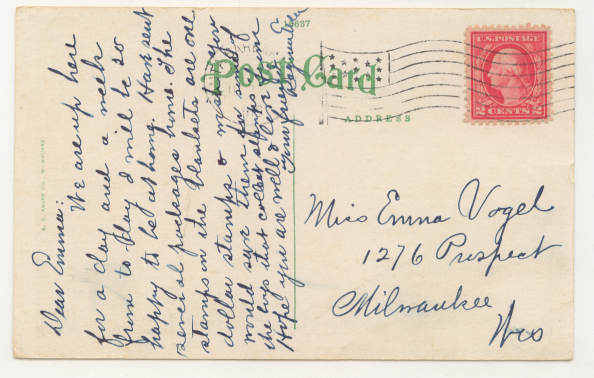 Dear Emma:
We are up here
for a day and a week
from to-day I will be so
happy to be at home. Have sent
several packages home. The
stamps on the blankets are one
dollar stamps & wish you
would save them for some of
the boys that collect stamps
Hope you are well &
Your friend
16637
Post Card
ADDRESS
U.S. POSTAGE
2 CENTS 2
Miss Emma Vogel
1276 Prospect
Milwaukee
Wis